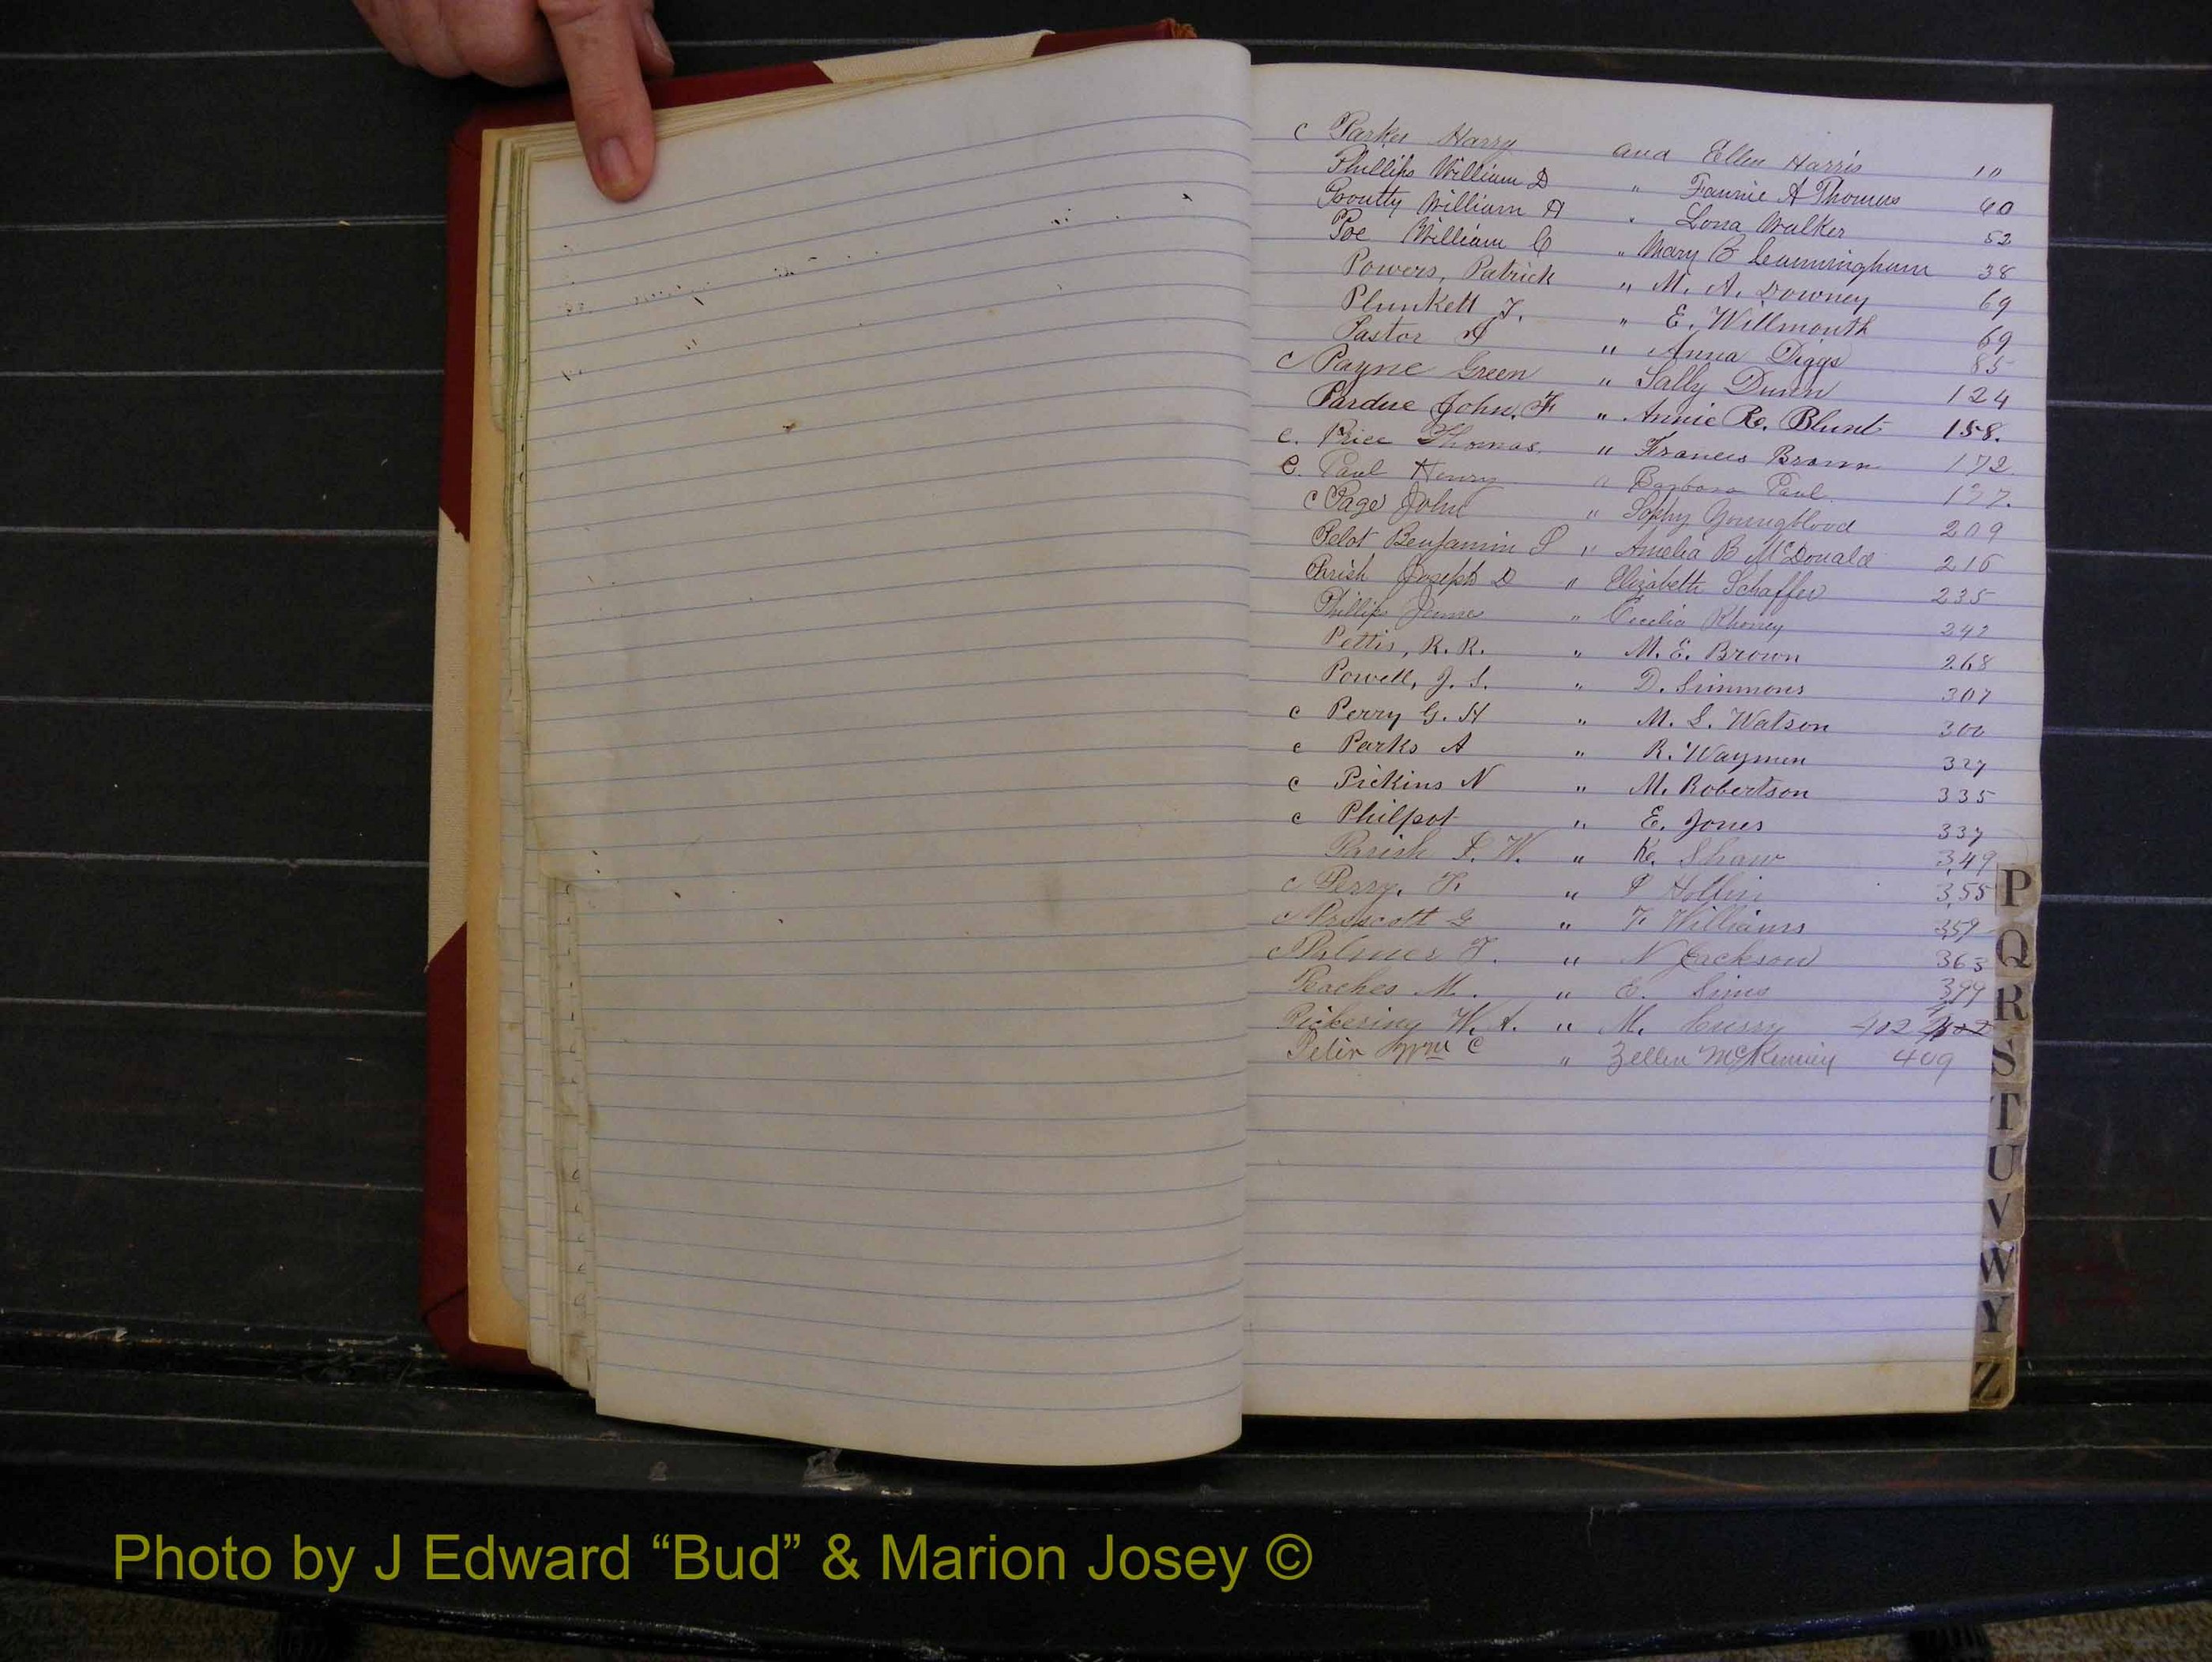 c Parker Harry and Ellen Harris 10
Phillips William D " Fannie A Thomas 60
Poutty William A " Lona Walker 52
Poe William C " Mary B Cunningham 38
Powers, Patrick " M. A. Downey 69
Plunkett T. " E. Willmouth 69
Pastor A " Anna Diggs 85
c Payne Green " Sally Dunn 124
Pardue John. F " Annie Re. Blunt 158.
c. Price Thomas. " Frances Brown 172.
C. Paul Henry " Barbara Paul.
c Page John " Sophy Youngblood 209
Pelot Benjamin S " Amelia B McDonald 216
Joseph D " Elizabeth Schaffer 235
Phillips " Cecilia Rhoney 242
Pettis, R. R. " M. E. Brown 268
Powell, J. S. " D. Simmons 307
c Perry G. H " M. L. Watson 300
c Parks A " R. Waymen 327
c Pickins N " M. Robertson 335
c Philpot " E. Jones 337
Parish S. W. " Ke. Shaw 349
c Perry. F. " P Hollin 355
c Prescott G " F Williams 359
c Palmer F. " N Jackson 363
Peaches M. " E. Sims 399
Pickering W. A. " M. Curry 402
Peter Wm C " Zellen McKenney 409
P
Q
R
S
T
U
V
W
Y
Z
Photo by J Edward “Bud” & Marion Josey ©